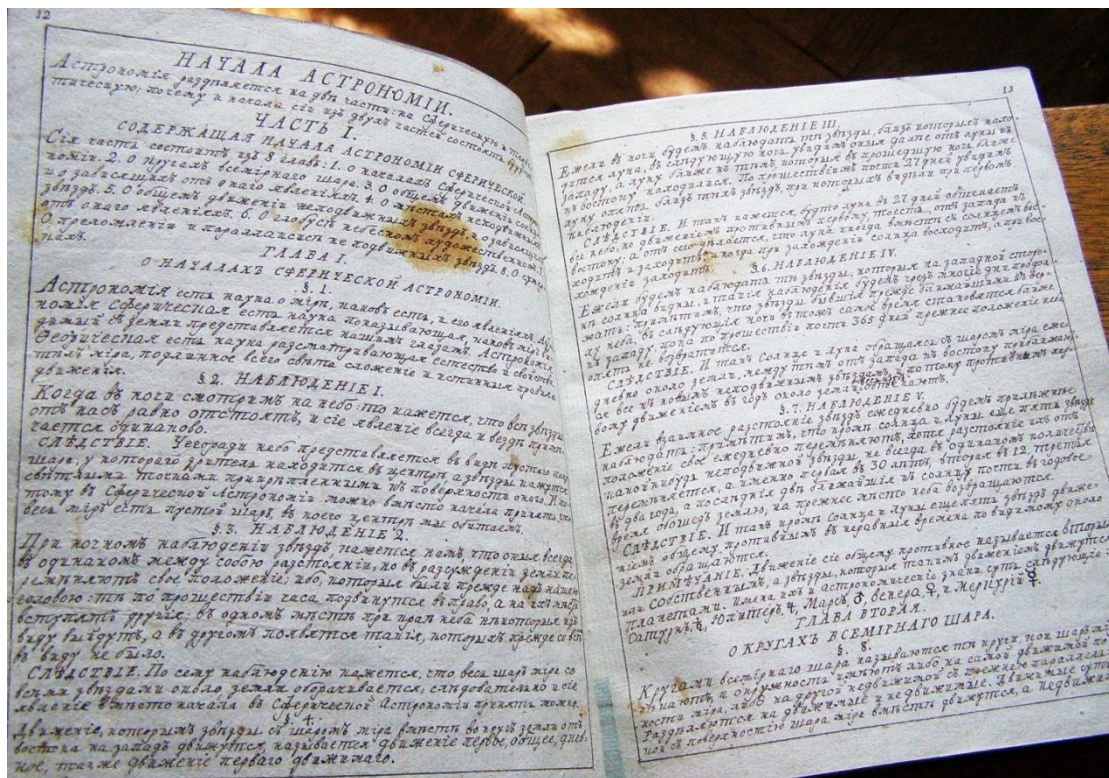 12
НАЧАЛА АСТРОНОМІИ.
Астрономія раздѣляется на двѣ части: на Сферическую и Ѳеоре-
тическую; почему и начала сіи изъ двухъ частей состоять будутъ.
ЧАСТЬ I.
СОДЕРЖАЩАЯ НАЧАЛА АСТРОНОМІИ СФЕРИЧЕСКОЙ.
Сія часть состоитъ изъ 8 главъ: 1. О началахъ Сферической Астро-
номіи. 2. О кругахъ всемірнаго шара. 3. О общемъ движеніи Солнца
и о зависящихъ отъ онаго явленіяхъ. 4. О мѣстахъ неподвижныхъ
звѣздъ. 5. О общемъ движеніи неподвижныхъ звѣздъ, о зависящихъ
отъ онаго явленіяхъ. 6. О глобусѣ небесномъ художественномъ. 7.
О преломленіи и параллаксисѣ неподвижныхъ звѣздъ. 8. О
ГЛАВА I.
О НАЧАЛАХЪ СФЕРИЧЕСКОЙ АСТРОНОМІИ.
§. 1.
Астрономія есть наука о мірѣ, каковъ есть, и его явленіяхъ. Астро-
номія Сферическая есть наука показывающая, каковъ міръ ви-
димый съ земли представляется нашимъ глазамъ. Астрономія
Ѳеорическая есть наука разсматривающая естество и свойства
тѣлъ міра, подлинное всего свѣта сложеніе и истинныя правила
движенія.
§. 2. НАБЛЮДЕНІЕ I.
Когда въ ночи смотримъ на небо: то кажется, что всѣ звѣзды
отъ насъ равно отстоятъ, и сіе явленіе всегда и вездѣ примѣ-
чается одинаково.
СЛѢДСТВІЕ. Чего ради небо представляется въ видѣ пустаго
шара, у котораго зритель находится въ центрѣ, а звѣзды кажутся
свѣтлыми точками прикрѣпленными къ поверхности онаго. И по-
тому въ Сферической Астрономіи можно вмѣсто начала принять, что
весь міръ есть пустой шаръ, въ коего центрѣ мы обитаемъ.
§. 3. НАБЛЮДЕНІЕ 2.
При ночномъ наблюденіи звѣздъ кажется намъ что оныя всегда
въ одинакомъ между собою разстояніи, но въ разсужденіи земли пе-
ремѣняютъ свое положеніе; ибо, которыя были прежде надъ нашею
головою: тѣ по прошествіи часа подвинутся вправо, а на ихъ мѣсто
вступятъ другіе; въ одномъ мѣстѣ при краѣ неба нѣкоторыя изъ
виду выйдутъ, а въ другомъ появятся такія, которыхъ прежде со всѣмъ
въ виду не было.
СЛѢДСТВІЕ. По сему наблюденію кажется, что весь шаръ міра со
всѣми звѣздами около земли оборачивается, слѣдовательно и сіе
явленіе вмѣсто начала въ Сферической Астрономіи принять можно.
§. 4.
Движеніе, которымъ звѣзды съ шаромъ міра вмѣстѣ вокругъ земли отъ
востока на западъ движутся, называется движеніе первое, общее, днев-
ное, также движеніе перваго движимаго.
13
§. 5. НАБЛЮДЕНІЕ III.
Ежели въ ночи будемъ наблюдать тѣ звѣзды, близъ которыхъ нахо-
дится луна, въ слѣдующую ночь увидимъ оныя далѣе отъ луны къ
западу, а луну ближе къ тѣмъ, которыя въ прошедшую ночь ближе
къ востоку находилися. По прошествіи почти 27 дней увидимъ
луну опять близъ тѣхъ звѣздъ, при которыхъ видѣли при первомъ
наблюденіи.
СЛѢДСТВІЕ. И такъ кажется, будто луна въ 27 дней обтекаетъ
все небо движеніемъ противнымъ первому, то есть отъ запада къ
востоку; а отъ сего дѣлается, что луна иногда вмѣстѣ съ солнцемъ вос-
ходитъ и заходитъ; иногда при захожденіи солнца восходитъ, а при вос-
хожденіи заходитъ.
§. 6. НАБЛЮДЕНІЕ IV.
Ежели будемъ наблюдать тѣ звѣзды, которыя на западной сторо-
нѣ солнца видны, и такія наблюденія будемъ чрезъ многіе дни продол-
жать: примѣтимъ, что звѣзды бывшія прежде ближайшими къ вер-
ху неба, въ слѣдующія ночи въ тожъ самое время становятся ближе
къ западу, пока по прошествіи почти 365 дней прежнее положеніе ихъ
опять не возвратится.
СЛѢДСТВІЕ. И такъ Солнце и Луна обращаяся съ шаромъ міра еже-
дневно около земли, между тѣмъ отъ запада къ востоку приближают-
ся все къ новымъ неподвижнымъ звѣздамъ, и потому противнымъ пер-
вому движеніемъ въ годъ около земли обтекаютъ.
§. 7. НАБЛЮДЕНІЕ V.
Ежели взаимное разстояніе звѣздъ ежедневно будемъ прилѣжнѣе
наблюдать: примѣтимъ, что кромѣ солнца и луны еще пять звѣздъ
положеніе свое ежедневно перемѣняютъ, хотя разстояніе ихъ отъ
какой нибудь неподвижной звѣзды не всегда въ одинакомъ количествѣ
перемѣняется, а именно первая въ 30 лѣтъ, вторая въ 12, третія
въ два года, а послѣднія двѣ ближайшія къ солнцу почти въ годовое
время обошедъ землю, на прежнее мѣсто неба возвращаются.
СЛѢДСТВІЕ. И такъ кромѣ Солнца и Луны еще пять звѣздъ движе-
ніемъ общему противнымъ въ неравныя времена по видимому около
земли обращаются.
ПРИМѢЧАНІЕ. Движеніе сіе общему противное называется вторымъ
или Собственнымъ, а звѣзды, которыя такимъ движеніемъ движутся
планетами. Имена ихъ и Астрономическіе знаки суть слѣдующіе:
Сатурнъ ♄, Юпитеръ ♃, Марсъ ♂, Венера ♀, и Меркурій ☿.
ГЛАВА ВТОРАЯ.
О КРУГАХЪ ВСЕМІРНАГО ШАРА.
§. 8.
Кругами всемірнаго шара называются тѣ круги, кои шаръ
и окружность имѣютъ либо на самой движимой по-
ности міра, либо на другой недвижимой съ прежнею параллельной.
Раздѣляются на движимые и недвижимые. Движимые суть
кои съ поверхностію шара міра вмѣстѣ движутся, а недвижи-